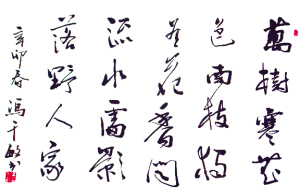 萬樹寒無
色南枝獨
花香聞
流水處影
落野人家
辛卯春馮千敏书